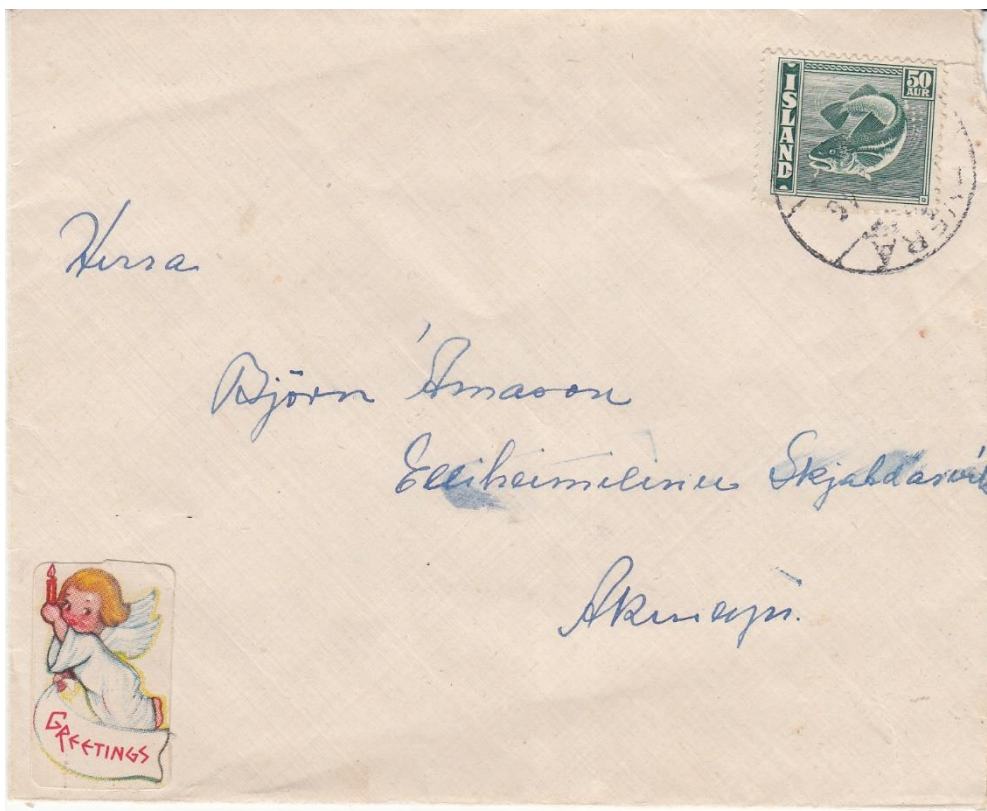 ÍSLAND
50
AUR
Herra
Björn Árnason
Elliheimilinu Skjaldarvík
Akureyri.
GREETINGS